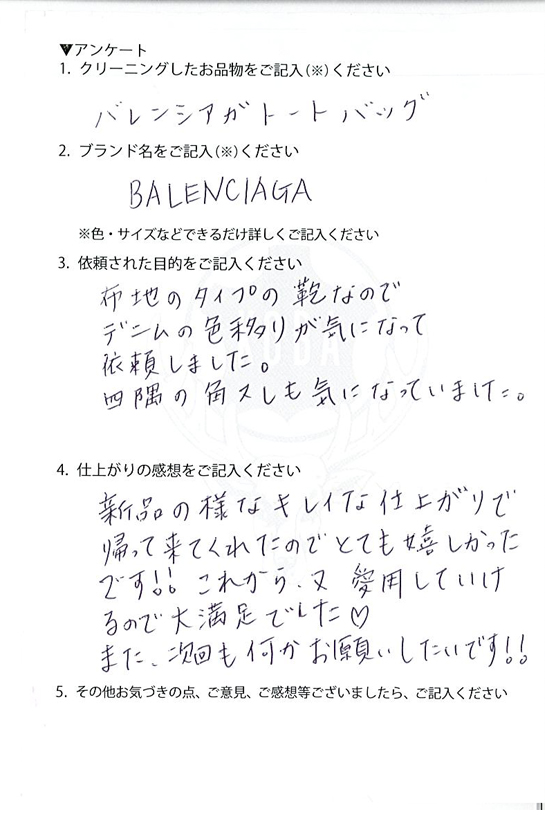 ▼アンケート
1. クリーニングしたお品物をご記入(※)ください
バレンシアガトートバッグ
2. ブランド名をご記入(※)ください
BALENCIAGA
※色・サイズなどできるだけ詳しくご記入ください
3. 依頼された目的をご記入ください
布地のタイプの鞄なので
デニムの色移りが気になって
依頼しました。
四隅の角スレも気になっていました。
4. 仕上がりの感想をご記入ください
新品の様なキレイな仕上がりで
帰って来てくれたのでとても嬉しかった
です!! これから、又 愛用していけ
るので大満足でした♡
また、次回も何かお願いしたいです!!
5. その他お気づきの点、ご意見、ご感想等ございましたら、ご記入ください